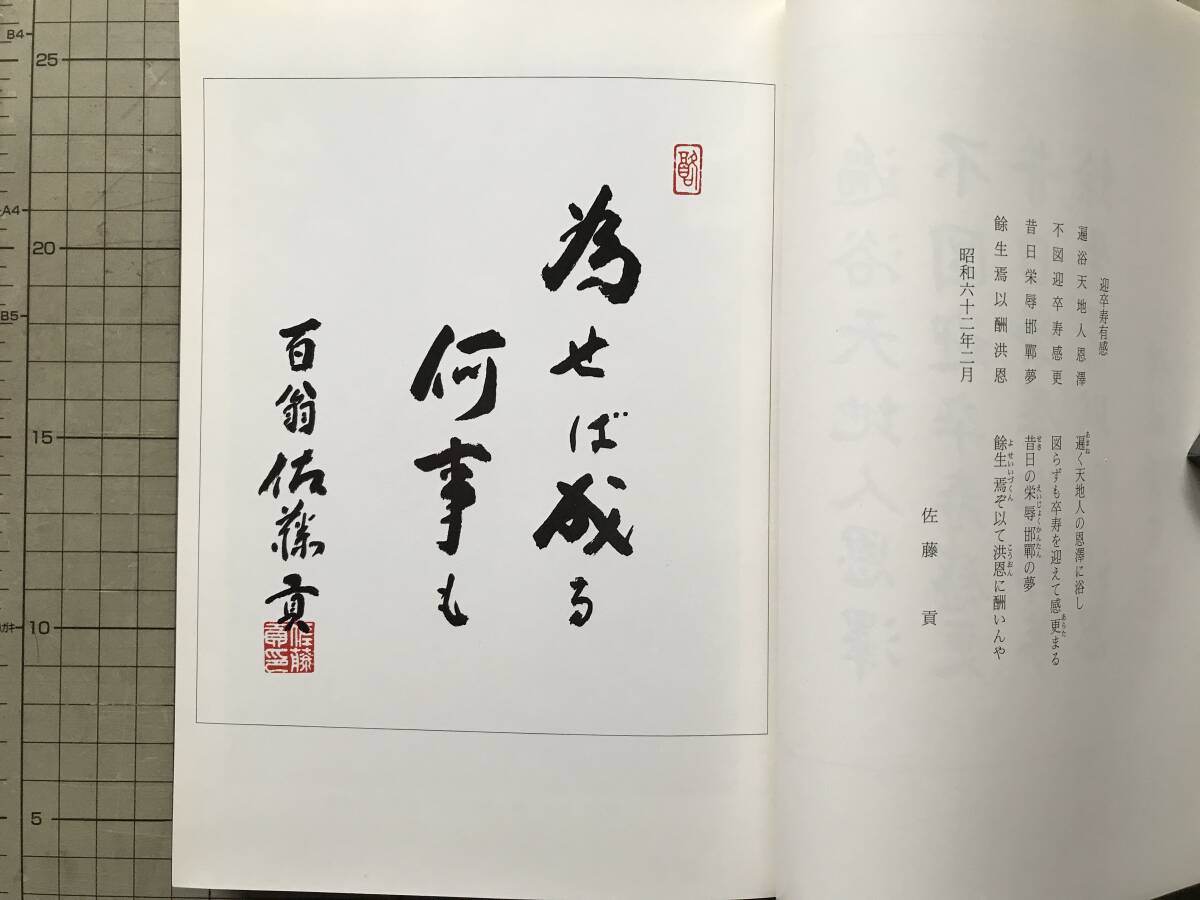 迎卒寿有感
遍浴天地人恩澤
不図迎卒寿感更
昔日栄辱邯鄲夢
餘生焉以酬洪恩
昭和六十二年二月
遍く天地人の恩澤に浴し
図らずも卒寿を迎えて感更まる
昔日の栄辱邯鄲の夢
餘生焉ぞ以て洪恩に酬いんや
佐藤 貢
為せば成る
何事も
百翁佐藤貢
佐藤
貢印
B4
25
A4
20
B5
15
ハガキ
10
5